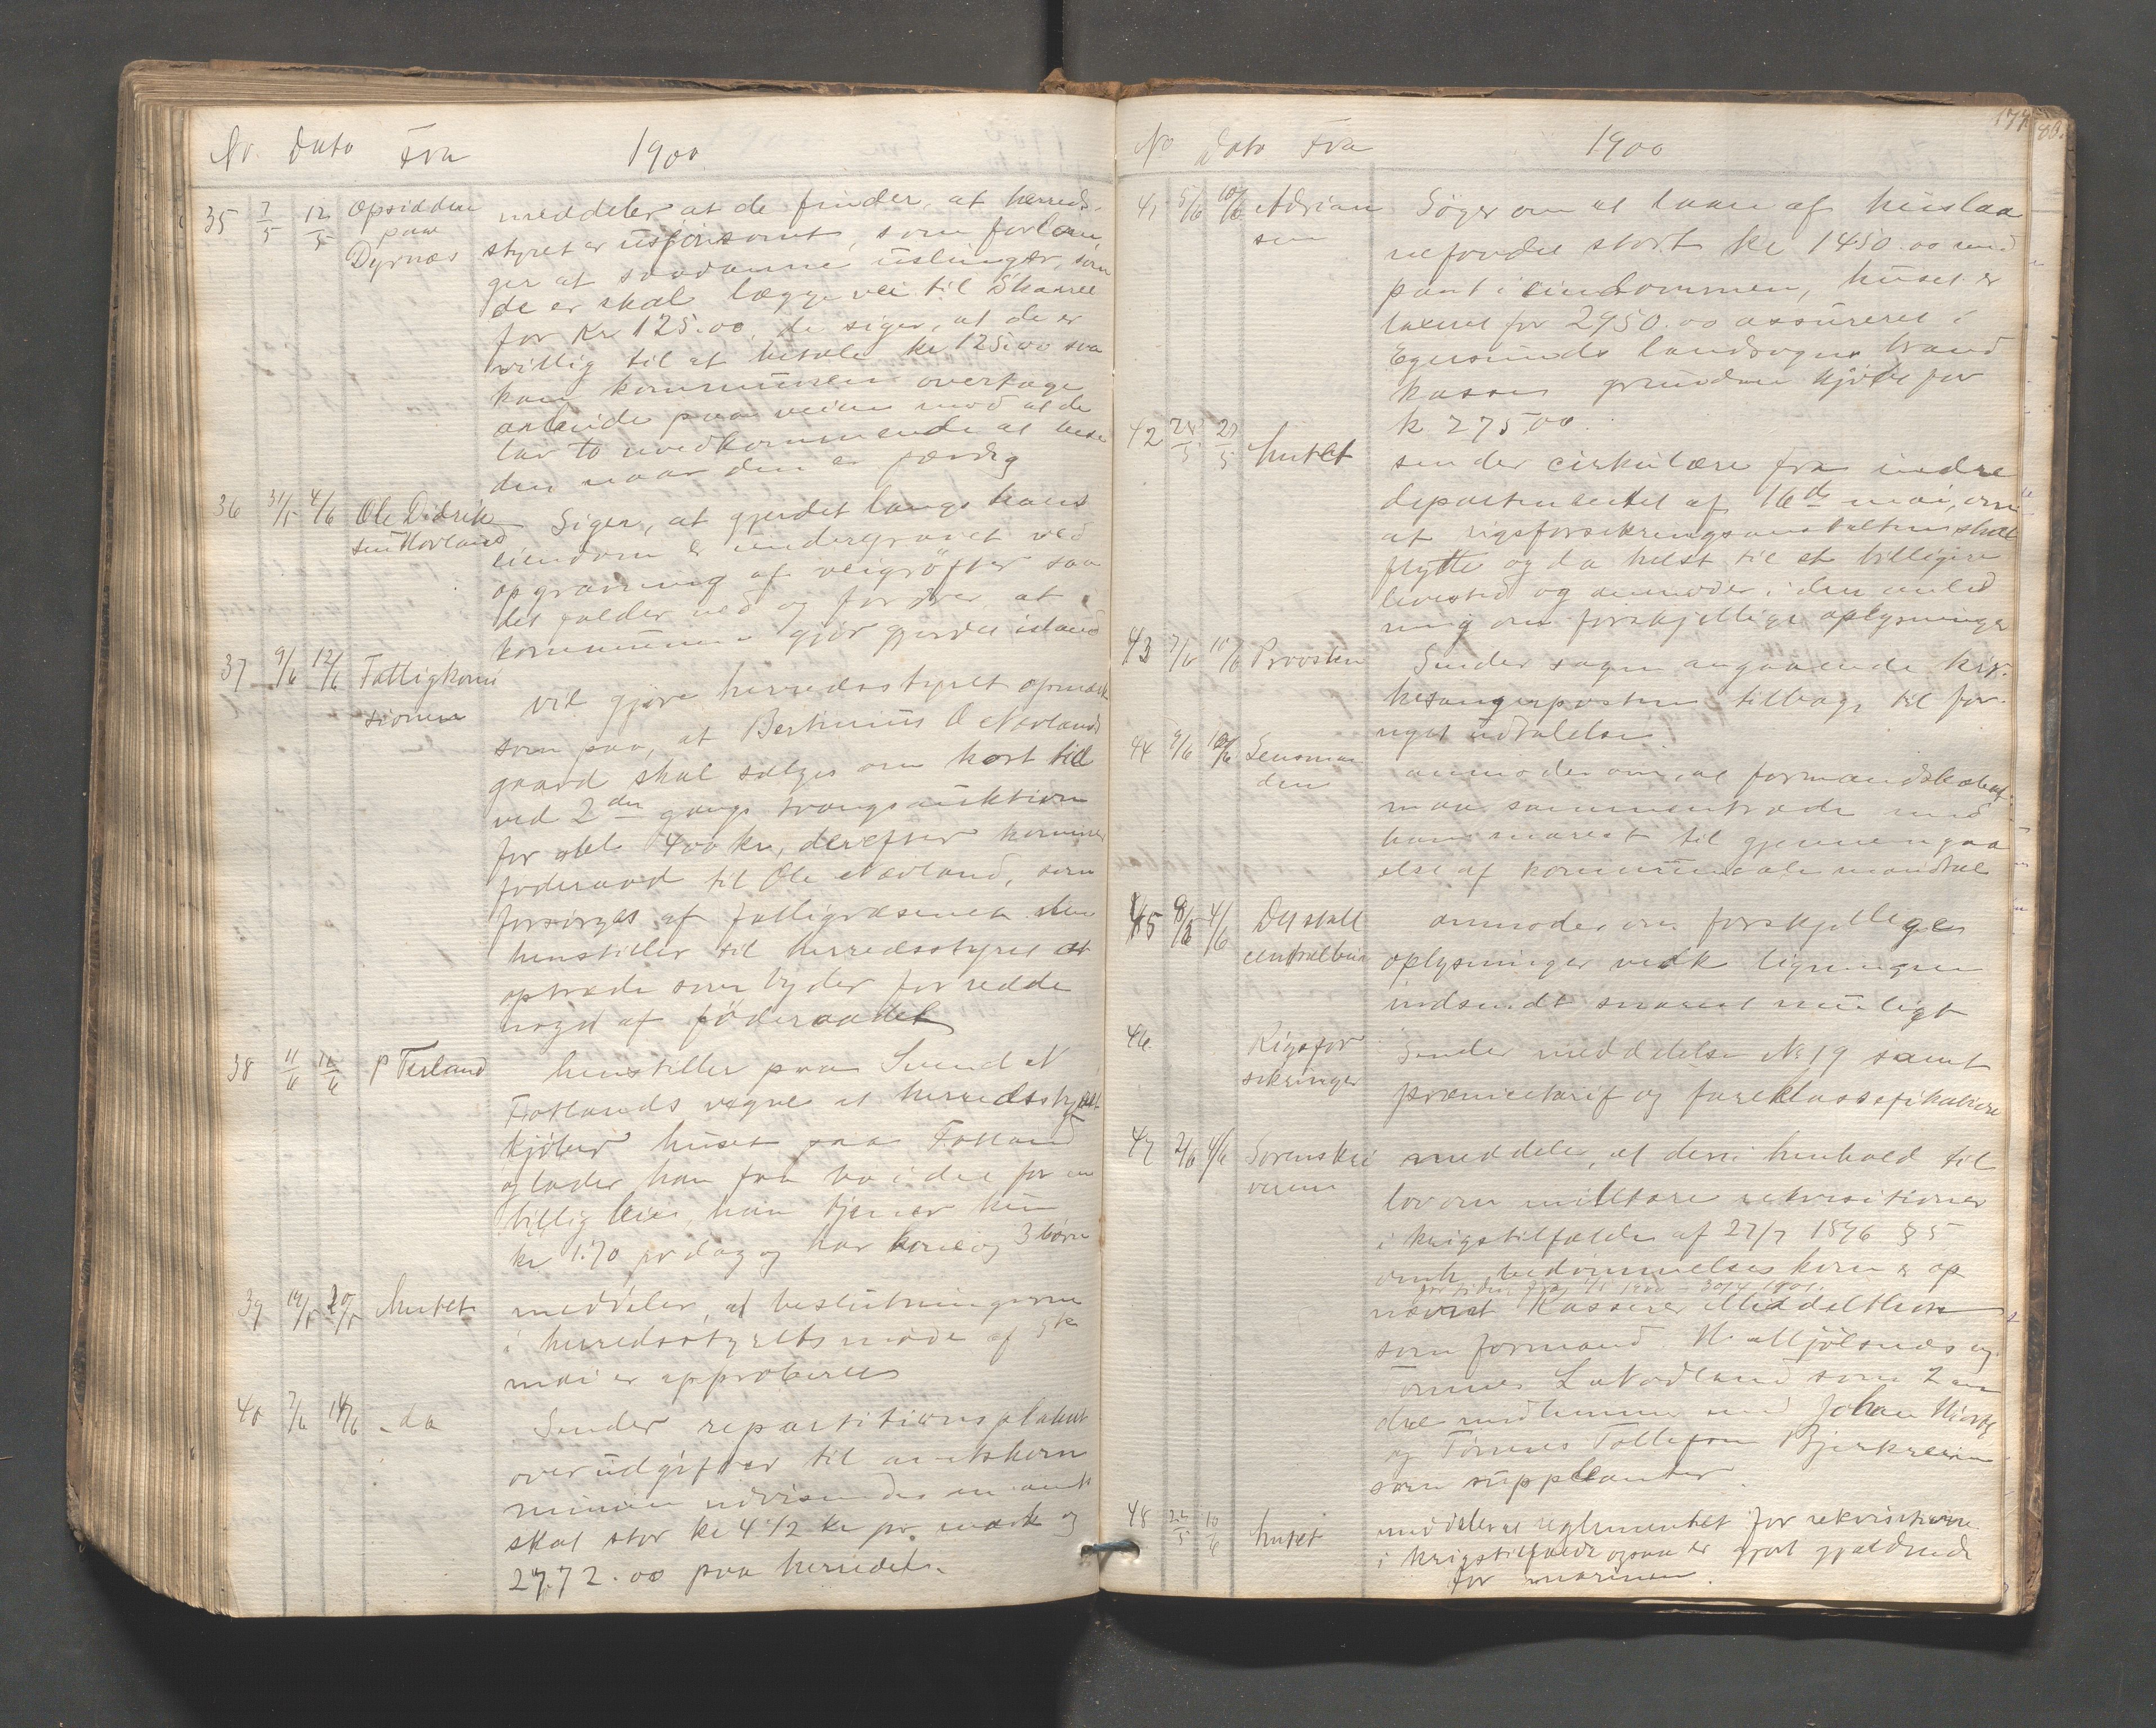 No. Dato Fra 1900
35 7/5 12/5 Opsiddere paa Dyrnæs
meddeler at de finder, at herreds-
styret er ufornsomt, som forlan
ger at saadanne uslinger, som
de er skal lægge vei til Skaaree
for Kr 125.00, de siger, at de er
villig til at betale kr 125.00 saa
kan kommunen overtage
arbeide paa veien mod at de
lar to uvedkommende at bese
den naar den er færdig
36 31/5 4/6 Ole Didrik
sen Hovland
Siger, at gjerdet langs hans
eiendom er undergravet ved
opgravning af veigrøfter saa
det falder ned og fordrer at
kommunen gjør gjerdet istand
37 9/6 12/6 Fattigkomi
sionen
vil gjøre herredsstyret opmærk
som paa, at Bertinius O Nevlands
gaard skal sælges om kort tid
ved 2den gangs tvangsauktion
for gjæld 400 kr, derefter kommer
føderaad til Ole Nevland, som
forsørges af fattigvæsenet den
henstiller til herredsstyret at
optræde som byder for redde
noget af føderaadet
38 11/6 12/6 P Terland
henstiller paa Svend N
Fotlands vegne at herredsstyret
kjøber huset paa Fotland
og lader han faa bo i det for en
billig leie, han tjener kun
kr 1.70 pr dag og har kone og 3 børn
39 19/5 20/5 Amtet
meddeler, at beslutningerne
i herredsstyrets møde af 5te
mai er approberet
40 7/6 14/6 - do
Sender repartitionsplakat
over udgifter til amtskom
munen udvisende en amts
skat stor kr 4 1/2 kr pr. mark og
2772.00 paa herredet.
No Dato Fra 1900
177
80.
41 5/6 10/6 Adrian
sen
Søger om et laan af huslaa
nefondet stort kr 1450.00 med
pant i eiendommen, huset er
taxeret for 2950.00 assureret i
Egersunds landsogns brand
kasse grunden kjøbt for
k 275.00.
42 28/5 29/5 Amtet
sender cirkulære fra indre
departementet af 16de mai, om
at rigsforsikringsanstalten skal
flytte og da helst til et billigere
levested og anmoder i den anled
ning om forskjellige oplysninger
43 7/6 10/6 Provsten
Sender sagen angaaende kir-
kesangerposten tilbage til for-
nyet udtalelse
44 9/6 10/6 Lensman
den
anmoder om, at formandskabet
maa sammentræde med
ham snarest til gjennemgaa
else af kommunale mandtal
45 8/6 4/6 Det stat
centralbur
anmoder om forskjellige
oplysninger vedk ligningen
indsendt snarest muligt
46 Rigsfor
sikringen
Sender meddelelse No 19 samt
præmietarif og fareklassifikation
47 2/6 4/6 Sorenskri
veren
meddeler, at den i henhold til
lov om militære rekvisitioner
i krigstilfælde af 27/7 1896 § 5
omh. bedømmelseskom er op
for tiden fra 1/5 1900 - 30/4 1901.
nævnt Kasserer Middelthon
som formand N. Mjølsnes og
Tønnes L Nodland som 2 an
dre medlemmer med Johan
og Tønnes Tollefsen Bjerkreim
som supplanter.
48 22/5 10/6 Amtet
meddeler at reglementet for rekvisitioner
i krigstilfælde ogsaa er gjort gjældende
for marinen.